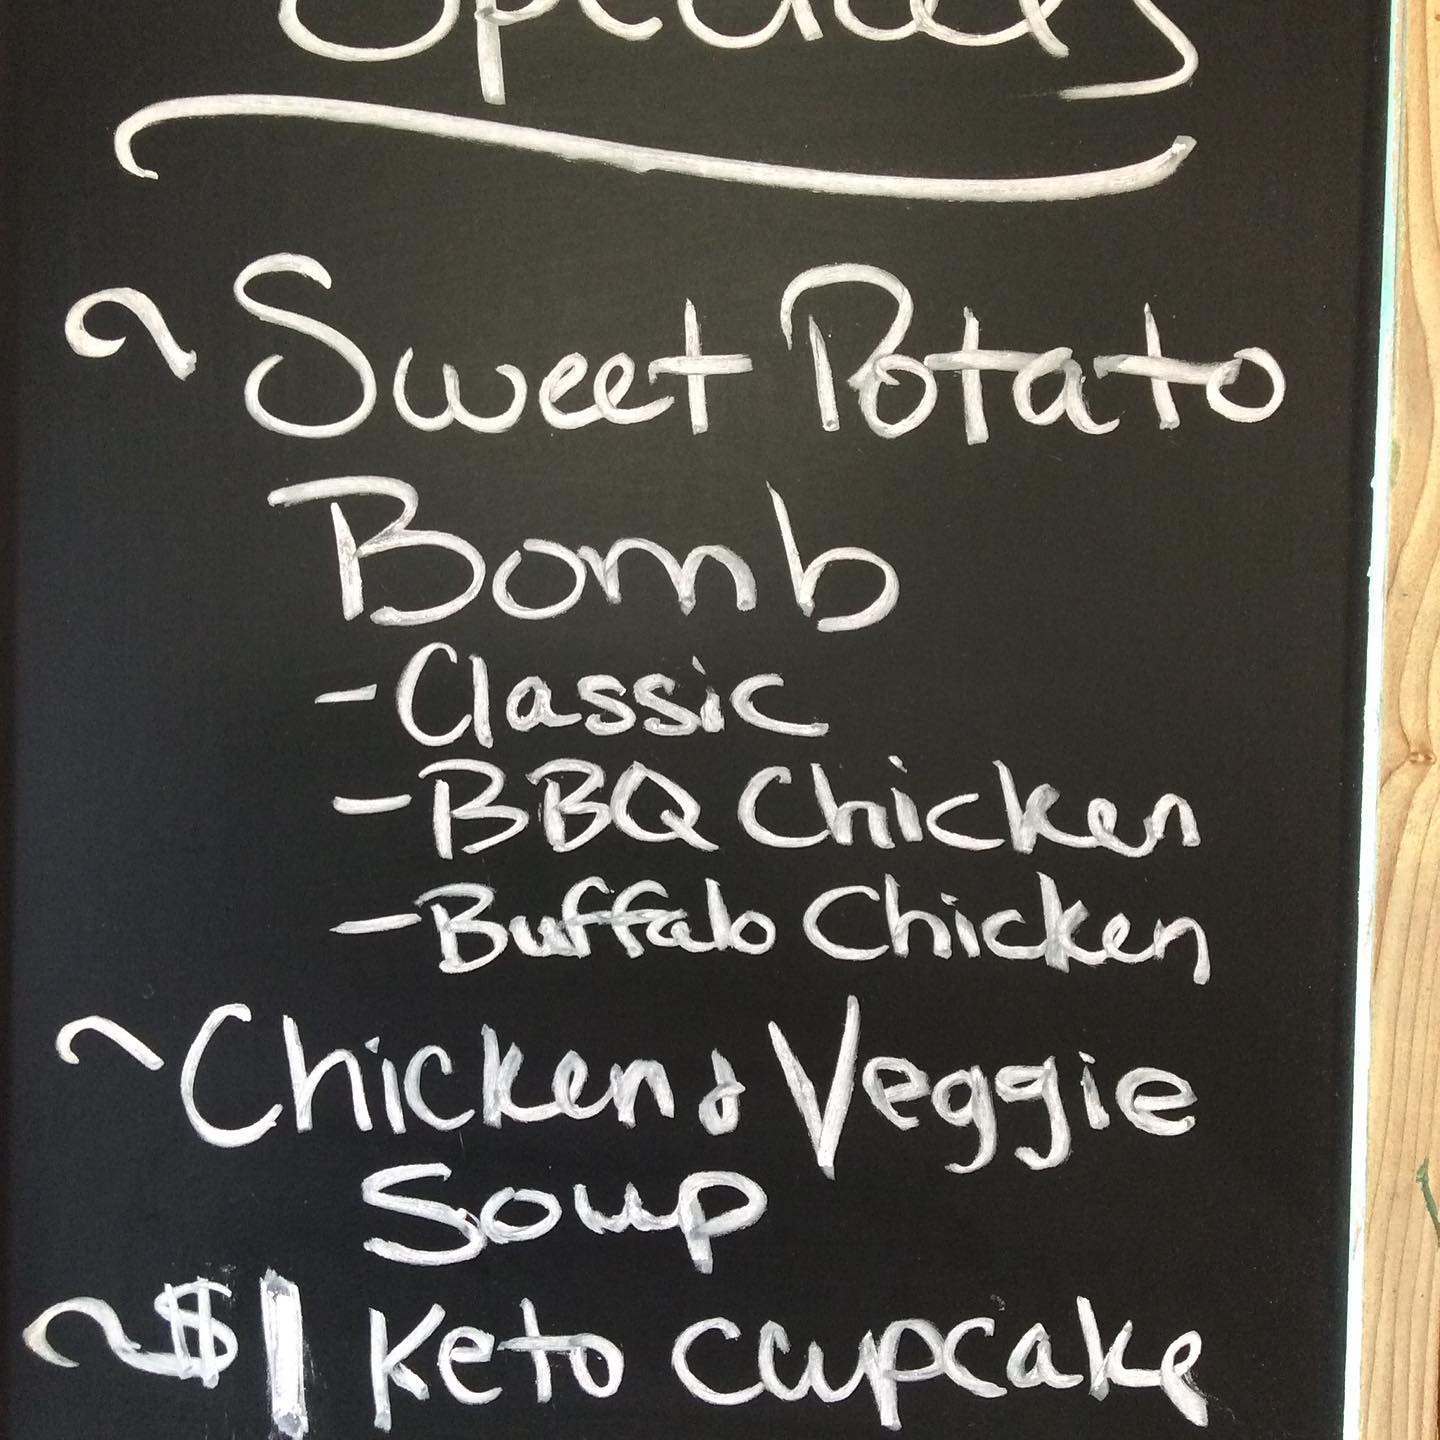 Specials
~ Sweet Potato
Bomb
- Classic
- BBQ Chicken
- Buffalo Chicken
~ Chicken & Veggie
Soup
~ $1 Keto Cupcake